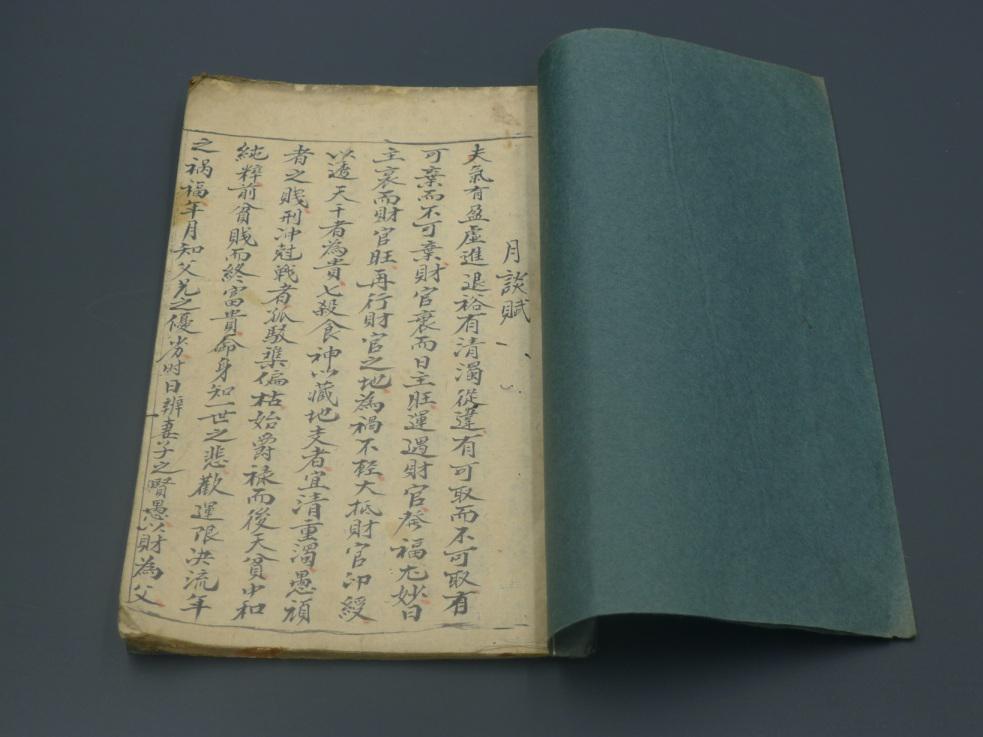 月談賦
夫氣有盈虛進退裕有清濁從違有可取而不可取有
可棄而不可棄財官衰而日主旺運遇財官發福尤妙日
主衰而財官旺再行財官之地為禍不輕大抵財官印綬
以透天干者為貴七殺食神以藏地支者宜清重濁愚頑
者之賤刑冲尅戰者孤駁雜偏枯始爵祿而後夭貧中和
純粹前貧賤而終富貴命身知一世之悲歡運限決流年
之禍福年月知父兄之優劣时日辨妻子之賢愚以財為父